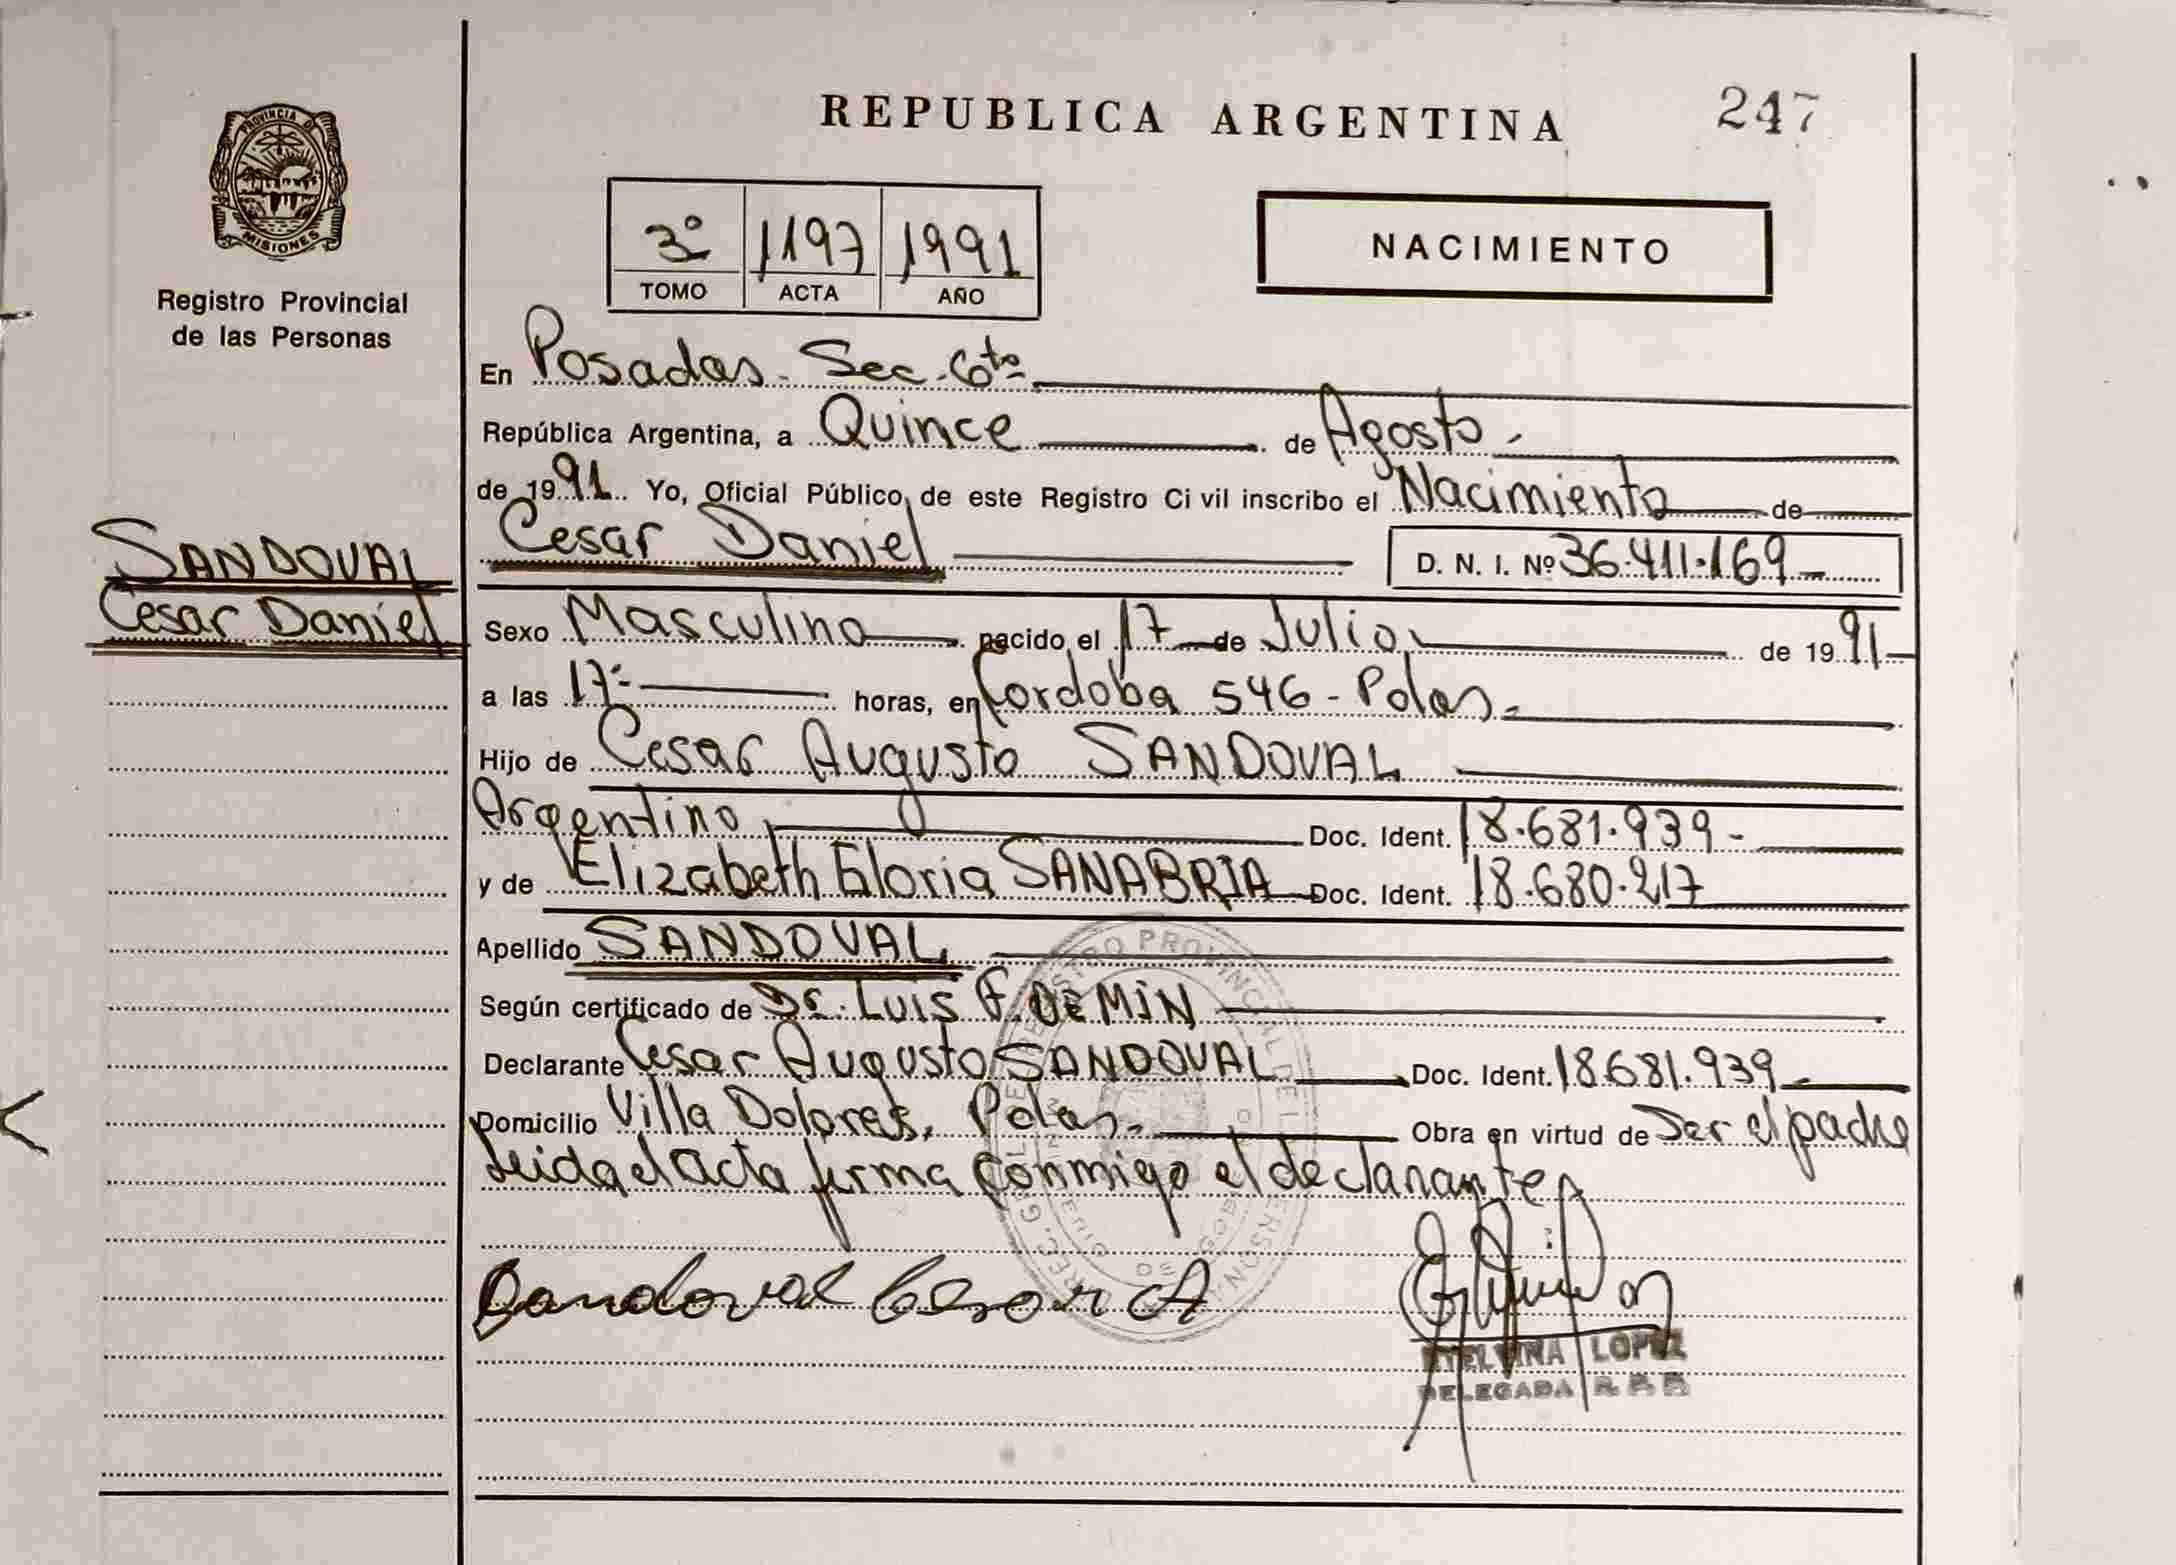 REPUBLICA ARGENTINA
247
PROVINCIA D MISIONES
Registro Provincial
de las Personas
3º 1197 1991
TOMO ACTA AÑO
NACIMIENTO
En Posadas - Sec. 6ta
República Argentina, a Quince de Agosto
de 1991 Yo, Oficial Público, de este Registro Civil inscribo el Nacimiento de
Cesar Daniel D. N. I. Nº 36.411.169
SANDOVAL
Cesar Daniel
Sexo Masculino nacido el 17 de Julio de 1991
a las 17 horas, en Cordoba 546 - Pdas.
Hijo de Cesar Augusto SANDOVAL
Argentino Doc. Ident. 18.681.939
y de Elizabeth Gloria SANABRIA Doc. Ident. 18.680.217
Apellido SANDOVAL
Según certificado de Dr. LUIS DEMIN
Declarante Cesar Augusto SANDOVAL Doc. Ident. 18.681.939
Domicilio Villa Dolores, Pdas. Obra en virtud de Ser el padre
Leida el acta firma conmigo el declarante
Sandoval Cesar A
LOPEZ
DELEGADA